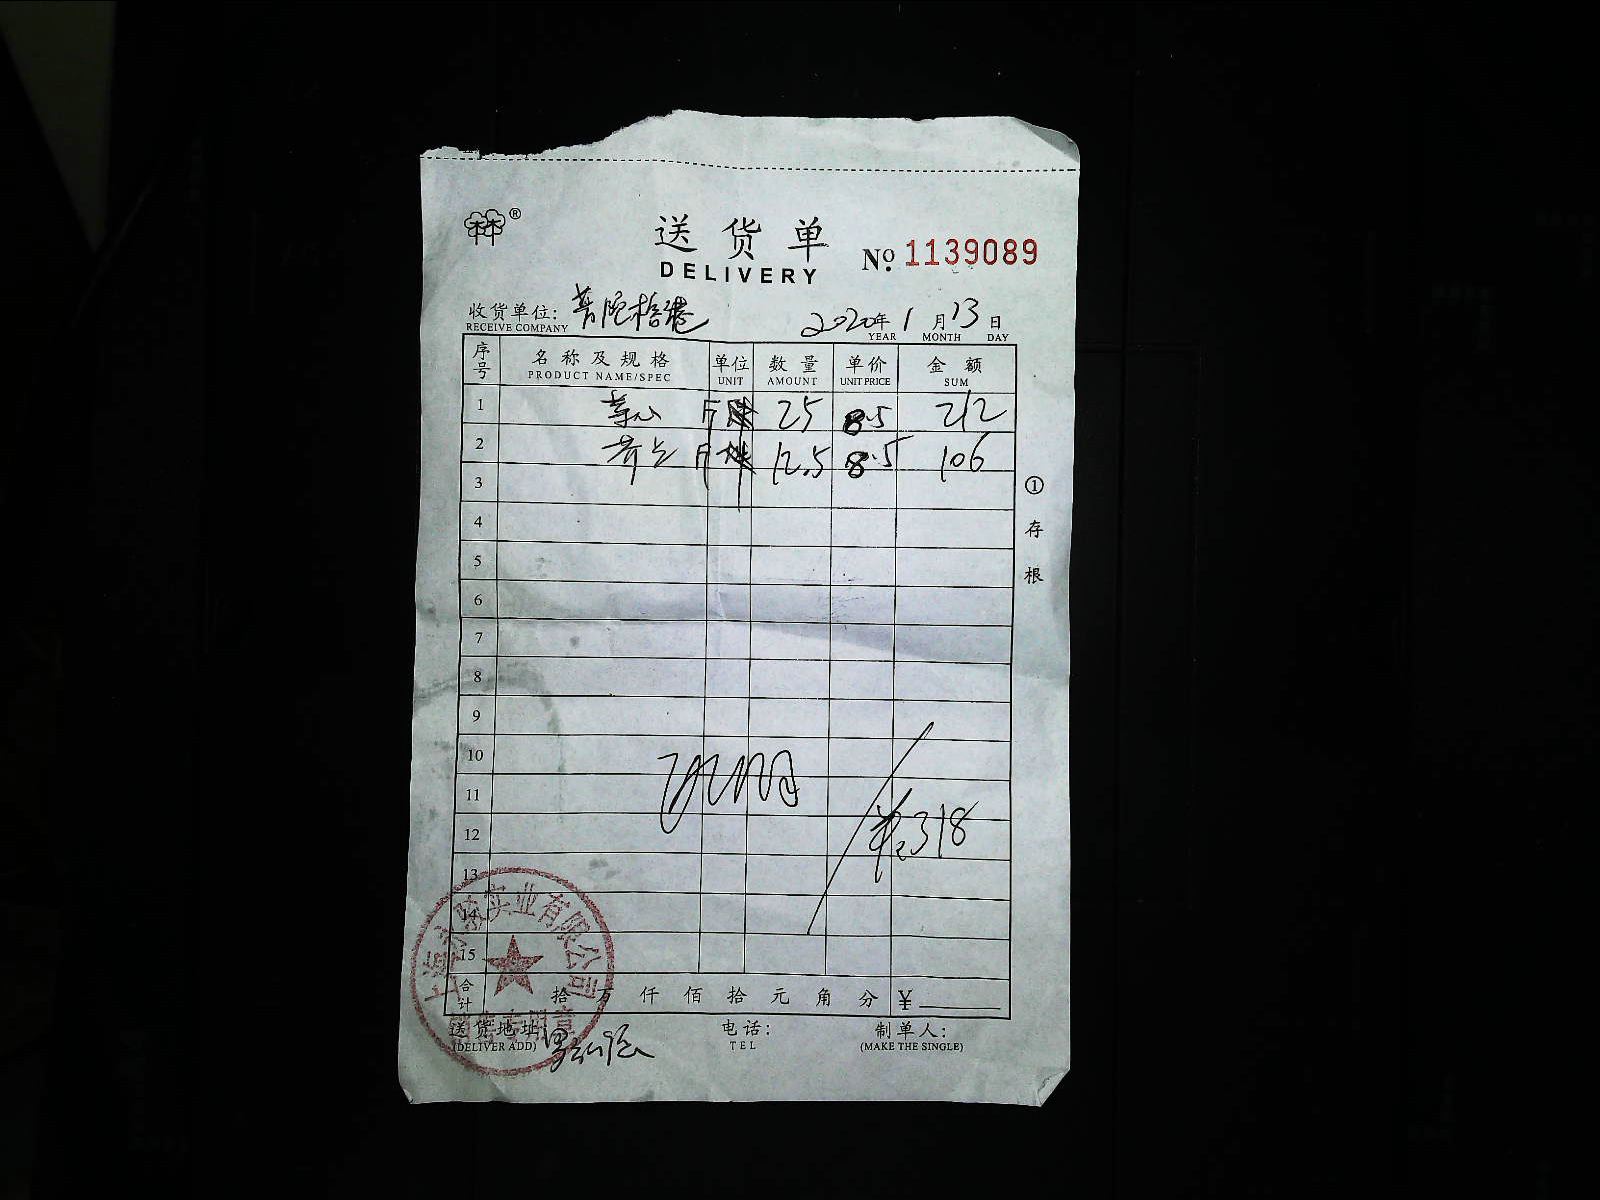 ®
送货单
DELIVERY
No. 1139089
收货单位:
RECEIVE COMPANY
2020年 1月 13日
YEAR MONTH DAY
序号 名称及规格 单位 数量 单价 金额
PRODUCT NAME/SPEC UNIT AMOUNT UNIT PRICE SUM
1 菜心 斤 25 8.5 212
2 斤 12.5 8.5 106
3
4
5
6
7
8
9
10
11
12 单:318
13
14
15
合计 拾 万 仟 佰 拾 元 角 分 ¥
送货地址 电话: 制单人:
(DELIVER ADD) TEL (MAKE THE SINGLE)
①存根
实业有限公司